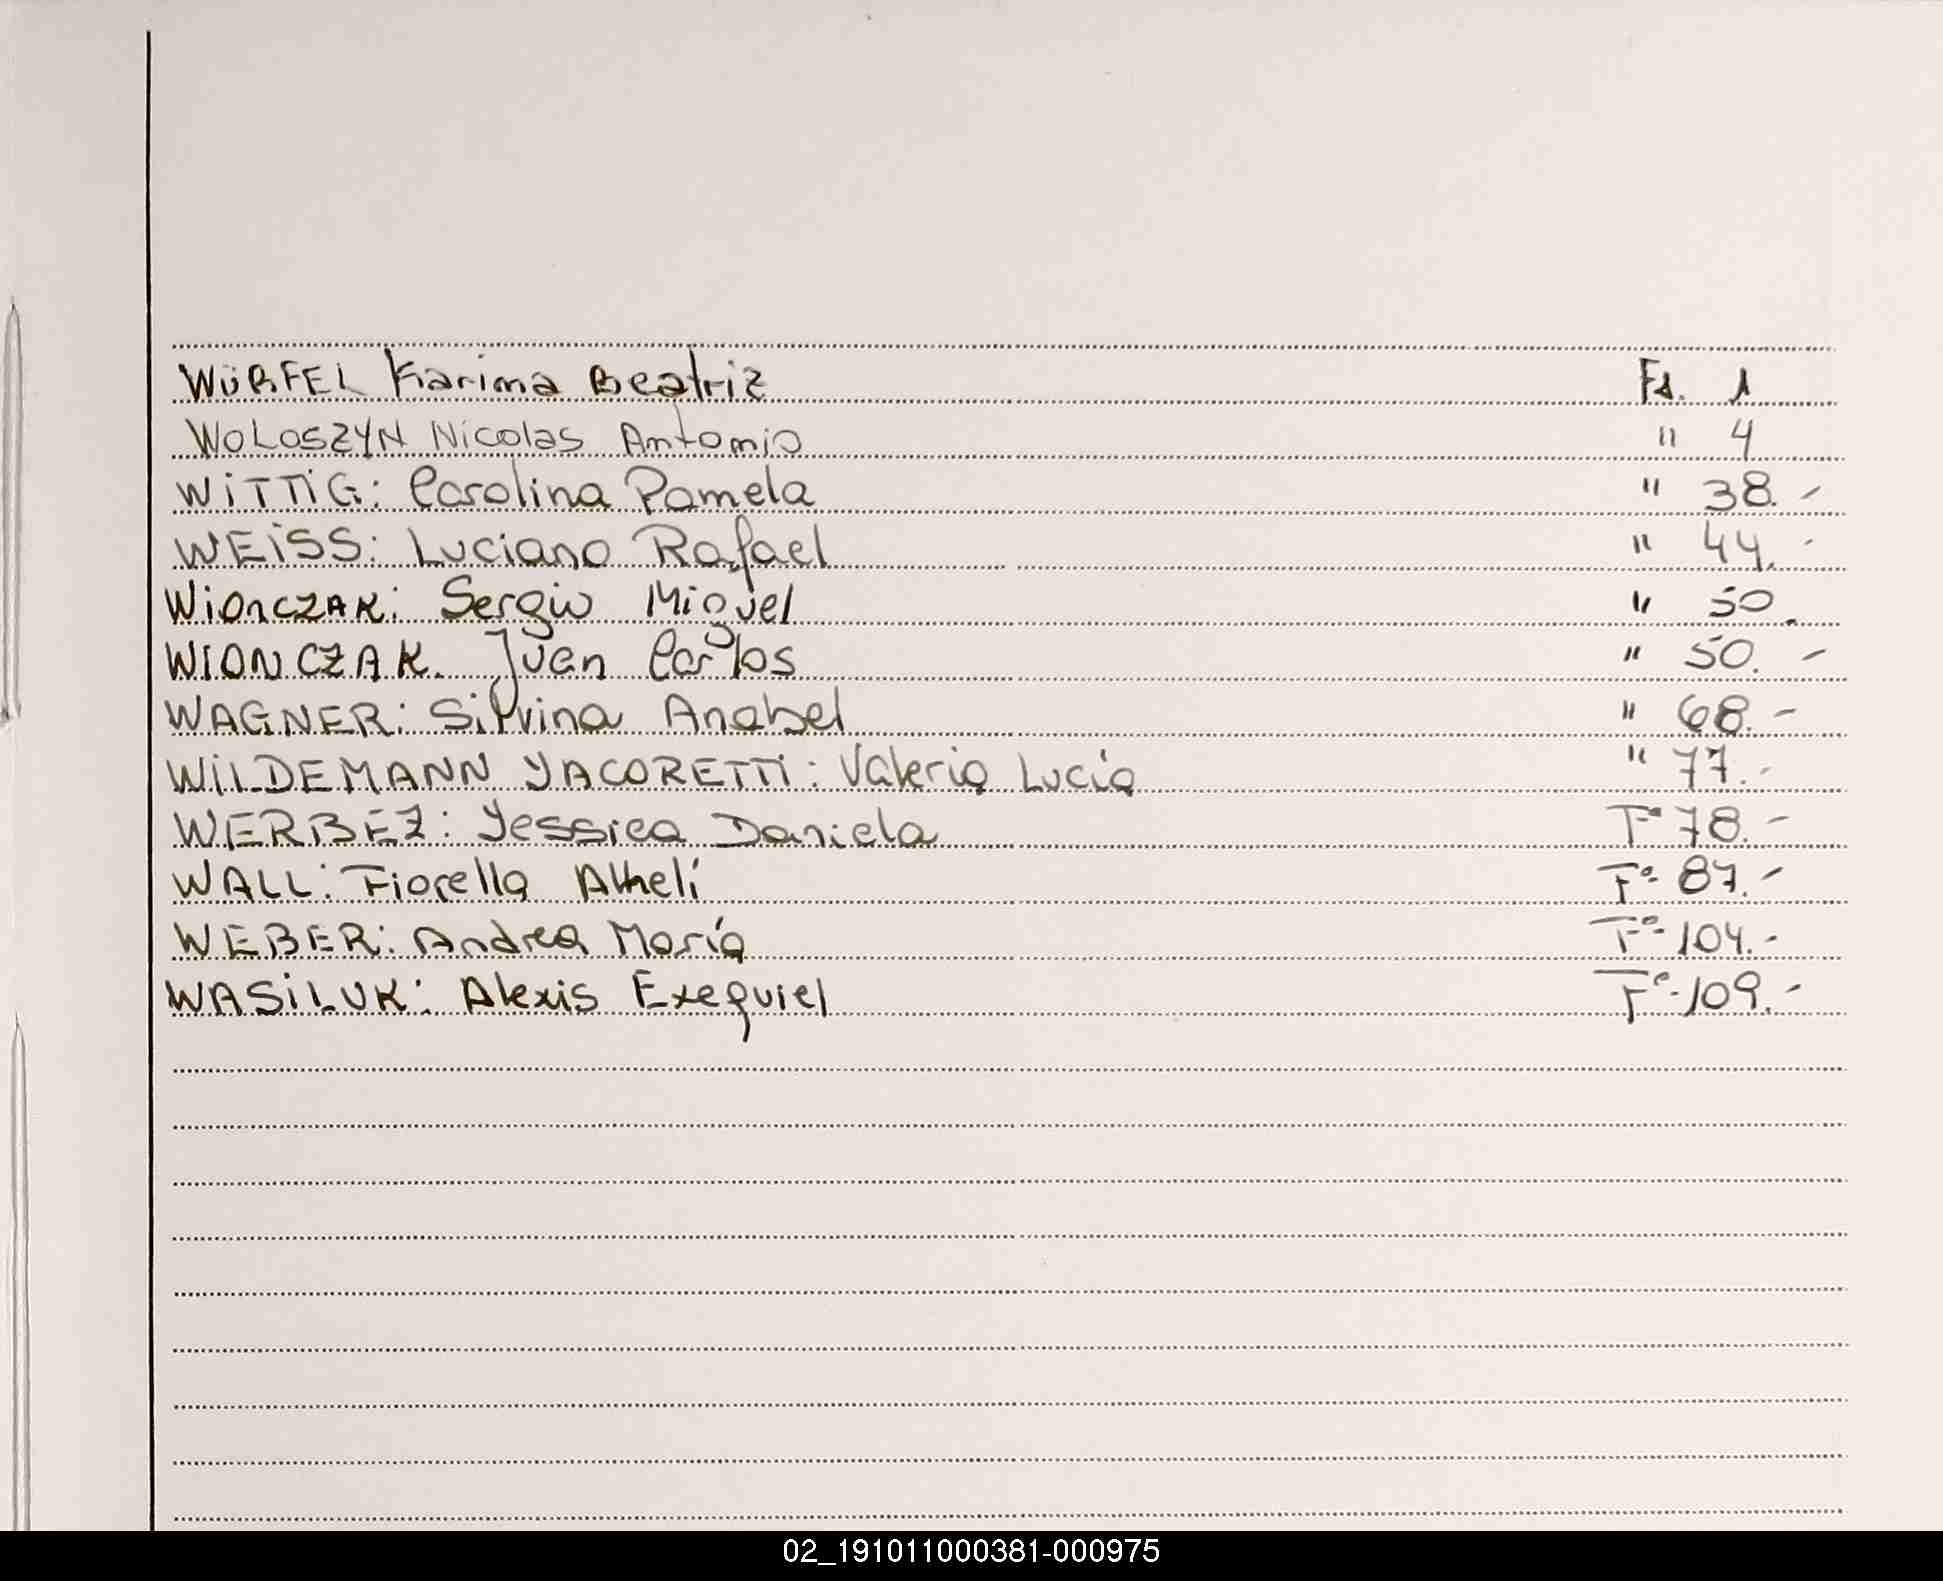 WÜRFEL Karima Beatriz Fs. 1
WOLOSZYN Nicolas Antonio " 4
WiTTiG: Carolina Pamela " 38.-
WEiSS: Luciano Rafael " 44.-
WionczAK: Sergio Miguel " 50.
WIONCZAK. Juan Carlos " 50.-
WAGNER: Silvina Anabel " 68.-
WiLDEMANN YACORETTi: Valeria Lucía " 77.-
WERBEZ: Yessica Daniela Fº 78.-
WALL: Fiorella Alhelí Fº- 87.-
WEBER: Andrea María Fº- 104.-
WASiLUK: Alexis Exequiel Fº- 109.-
02_191011000381-000975